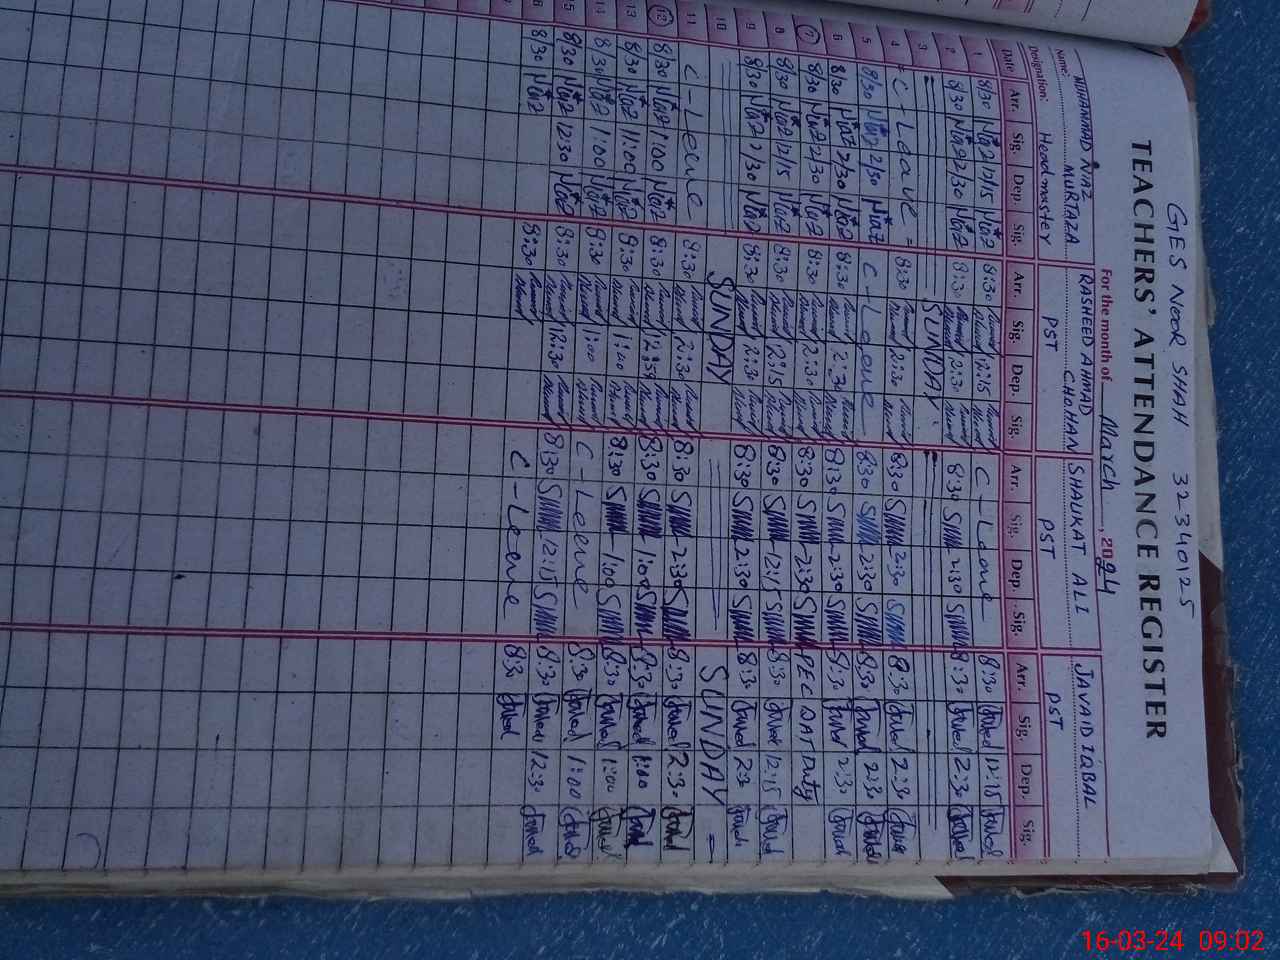 GES NOOR SHAH 322340125
TEACHERS' ATTENDANCE REGISTER
For the month of March, 2024
Name: MUHAMMAD NAZ MURTAZA RASHEED AHMAD CHOHAN SHAUKAT ALI JAVAID IQBAL
Designation: Headmaster PST PST PST
Date Arr. Sig. Dep. Sig. Arr. Sig. Dep. Sig. Arr. Sig. Dep. Sig. Arr. Sig. Dep. Sig.
1 8/30 Naz 12/15 Naz 8:30 12:15 C-Leave 8:30 12:15
2 8/30 Naz 2/30 Naz 8:30 2:30 8:30 2:30 8:30 2:30
3 SUNDAY
4 C-Leave 8:30 2:30 8:30 2:30 8:30 2:30
5 8/30 Naz 2/30 Naz C-Leave 8:30 2:30 8:30 2:30
6 8/30 Naz 2/30 Naz 8:30 2:30 8:30 2:30 8:30 2:30
7 8/30 Naz 2/30 Naz 8:30 2:30 8:30 2:30 PEC DAT Duty
8 8/30 Naz 12/15 Naz 8:30 12:15 8:30 12:15 8:30 12:15
9 8/30 Naz 2/30 Naz 8:30 2:30 8:30 2:30 8:30 2:30
10 SUNDAY SUNDAY
11 C-Leave 8:30 2:30 8:30 2:30 8:30 2:30
12 8/30 Naz 1:00 Naz 8:30 12:59 8:30 1:00 8:30 1:00
13 8/30 Naz 1:00 Naz 8:30 1:00 8:30 1:00 8:30 1:00
14 8/30 Naz 1:00 Naz 8:30 1:00 C-Leave 8:30 1:00
15 8/30 Naz 12:30 Naz 8:30 12:30 8:30 12:15 8:30 12:30
16 8/30 Naz 8:30 C-Leave 8:30
16-03-24 09:02